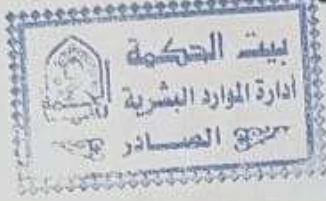 بيت الحكمة
أدارة الموارد البشرية
الصـــادر